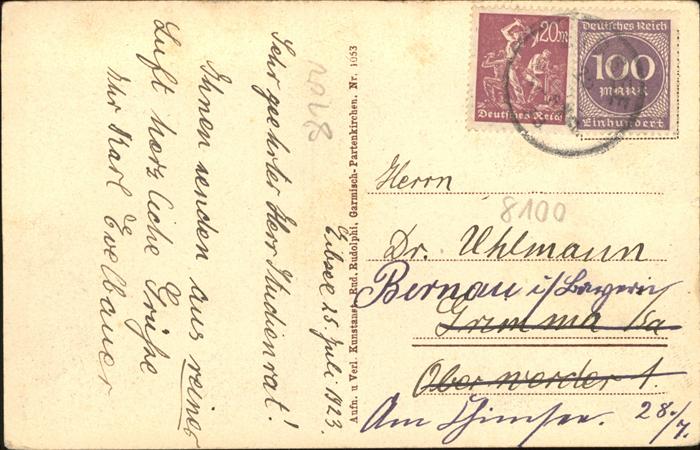 Eibsee 25. Juli 1923.
Sehr geehrter Herr Studienrat!
Ihnen senden aus reiner
Luft herzliche Grüße
Ihr Karl
1028
Aufn. u Verl. Kunstanst. Rud. Rudolphi, Garmisch-Partenkirchen. Nr. 1053
20 m
Deutsches Reich
Deutsches Reich
100
MARK
Einhundert
Herrn
8100
Dr. Uhlmann
Bernau i/Bayern
Grimma i/Sa
Oberwerder 1.
Am Chimsee. 28./7.